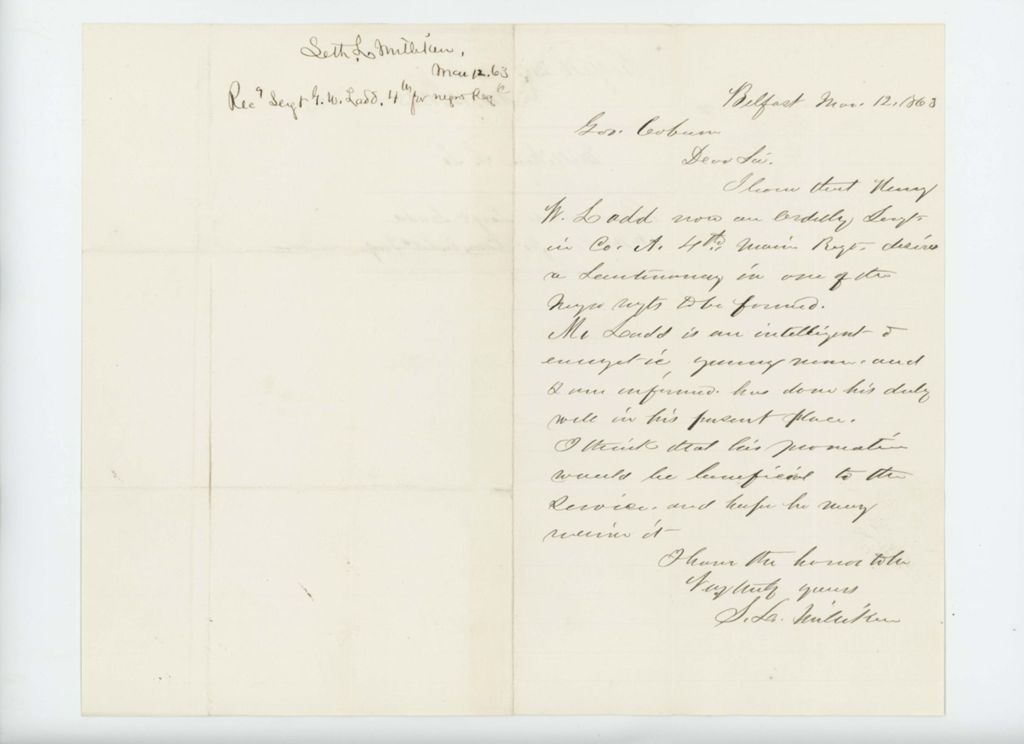 Seth L. Milliken,
Mar 12. 63
Recd Sergt G. W. Ladd, 4th for negro Regt
Belfast Mar. 12. 1863
Gov. Coburn
Dear Sir.
I learn that Henry
W. Ladd now an Orderly Sergt
in Co. A. 4th Maine Regt. desires
a Lieutenancy in one of the
Negro regts to be formed.
Mr Ladd is an intelligent &
energetic young man. and
I am informed. has done his duty
well in his present place.
I think that his promotion
would be beneficial to the
service. and hope he may
receive it
I have the honor to be
Very truly yours
S. L. Milliken